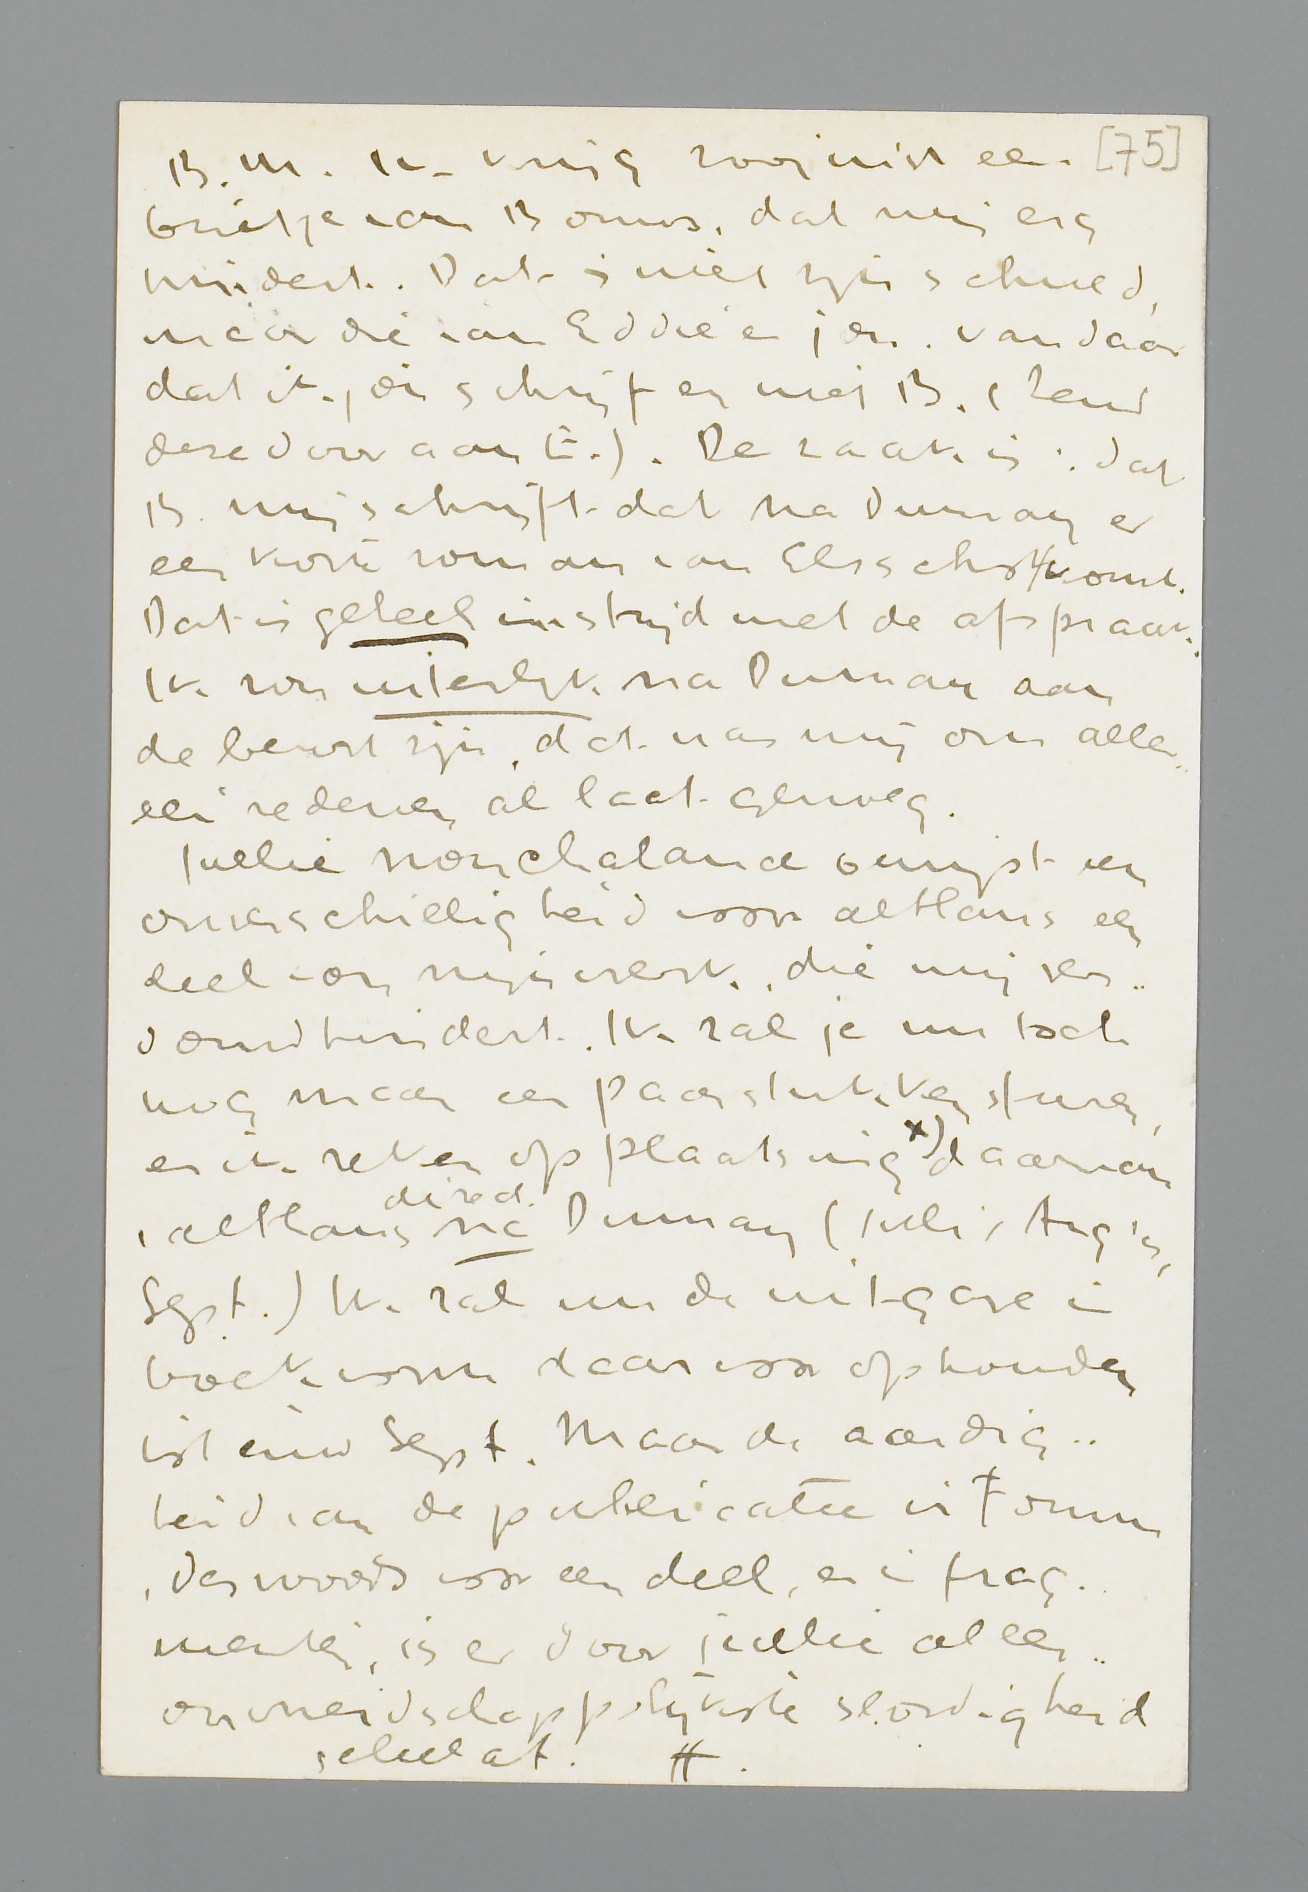 B.M. Ik krijg zoojuist een [75]
briefje van Bouws, dat mij erg
hindert. Dat is niet zijn schuld,
maar die van Eddie en jou. Vandaar
dat ik jou schrijf en niet B. (Zend
deze door aan E.). De zaak is: dat
B. mij schrijft dat na Dumay er
een korte roman van Elsschot komt.
Dat is geheel in strijd met de afspraak.
Ik zou uiterlijk na Dumay aan
de beurt zijn, dat was mij om aller-
lei redenen al laat genoeg.
Jullie nonchalance bewijst een
onverschilligheid voor althans een
deel van mijn werk, die mij ver-
domd hindert. Ik zal je nu toch
nog maar een paar stukken sturen,
en ik reken op plaatsing x) daarvan
, althans direct nà Dumay (Juli, Aug's,
Sept.) Ik zal nu de uitgave in
boekvorm daarvoor ophouden
tot eind Sept. Maar de aardig-
heid van de publicatie in Forum
, desnoods voor een deel, en in frag-
menten, is er door jullie aller-
onvriendschappelijkste slordigheid
geheel af. H.